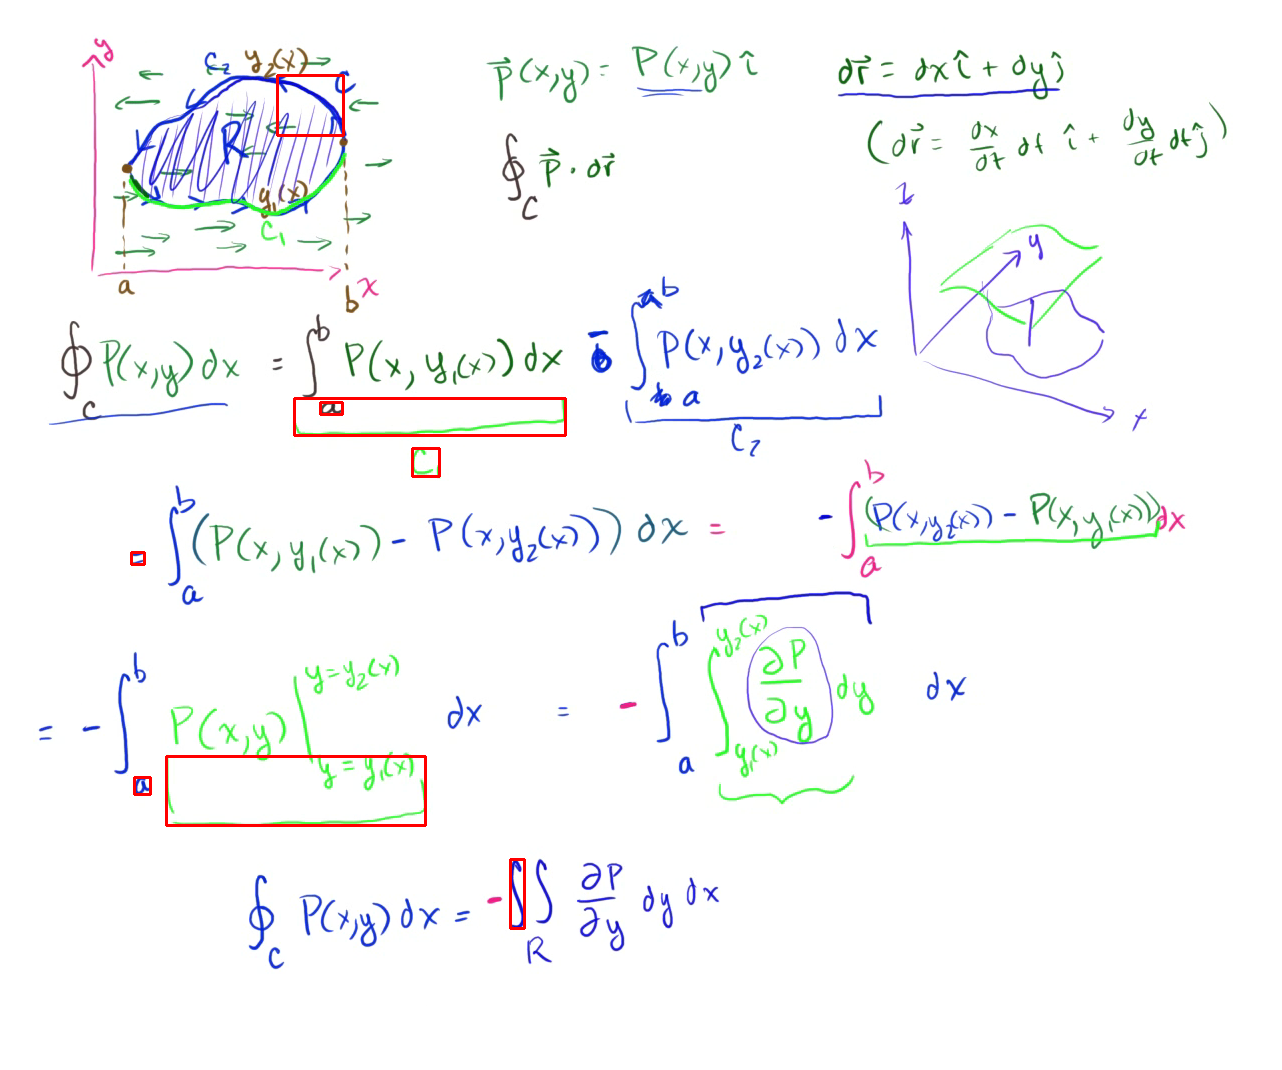 y
C₂ y₂(x) C
R
y₁(x)
C₁
a b x
P⃗(x,y) = P(x,y) î
∮_C P⃗ · dr⃗
dr⃗ = dx î + dy ĵ
(dr⃗ = dx/dt dt î + dy/dt dt ĵ)
z
y
x
∮_C P(x,y) dx = ∫_a^b P(x, y₁(x)) dx - ∫_a^b P(x, y₂(x)) dx
C C₂
= ∫_a^b (P(x, y₁(x)) - P(x, y₂(x))) dx = - ∫_a^b (P(x, y₂(x)) - P(x, y₁(x))) dx
= - ∫_a^b P(x,y) |_{y = y₁(x)}^{y = y₂(x)} dx = - ∫_a^b ∫_{y₁(x)}^{y₂(x)} ∂P/∂y dy dx
∮_C P(x,y) dx = - ∫∫_R ∂P/∂y dy dx